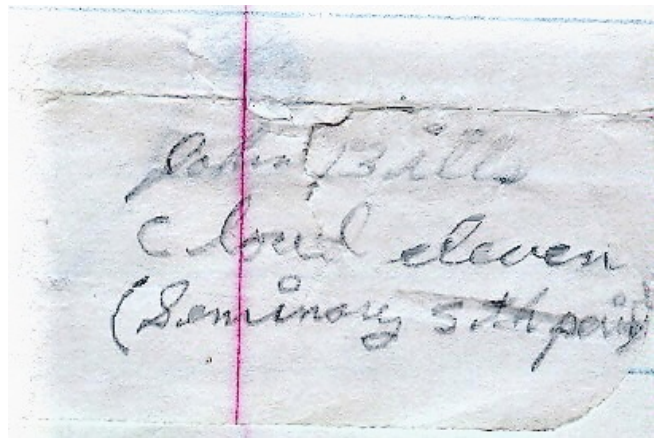 John Bills
Cloud eleven
(Seminary 5th